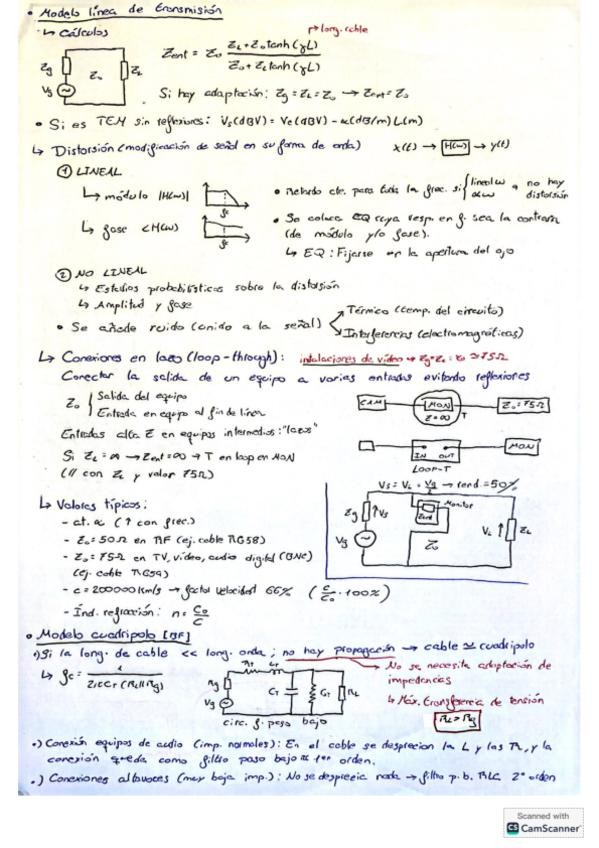 • Modelo línea de transmisión
↳ Cálculos
long. cable
Zent = Zo (ZL + Zo tanh(γL)) / (Zo + ZL tanh(γL))
Zg Vg Zo ZL
Si hay adaptación: Zg = ZL = Zo → Zent = Zo
• Si es TEM sin reflexiones: Vs(dBV) = Ve(dBV) - α(dB/m) L(m)
↳ Distorsión (modificación de señal en su forma de onda) x(t) → H(ω) → y(t)
① LINEAL
↳ módulo |H(ω)| fc
• Retardo cte. para toda la frec. si { lineal ω ∝ω no hay distorsión
↳ fase <H(ω) fc
• Se coloca EQ cuya resp. en f. sea la contraria
(de módulo y/o fase).
↳ EQ: Fijarse en la apertura del ojo
② NO LINEAL
↳ Estudios probabilísticos sobre la distorsión
↳ Amplitud y fase
• Se añade ruido (unido a la señal)
Térmico (temp. del circuito)
Interferencias (electromagnéticas)
↳ Conexiones en lazo (loop-through): instalaciones de vídeo → Zg=ZL=Zo≃75Ω
Conectar la salida de un equipo a varias entradas evitando reflexiones
Zo { Salida del equipo
Entrada en equipo al fin de línea
CAM MON Z=∞ T Zo=75Ω
Entradas alta Z en equipos intermedios: "lazos"
Si ZL = ∞ → Zent = ∞ → T en loop en MON
(// con ZL y valor 75Ω)
IN OUT MON
LOOP-T
Vs = VL = Vg/2 → rend. = 50%
Zg Vs Monitor Zent VL ZL
Vg Zo
↳ Valores típicos:
- at. α (↑ con frec.)
- Zo = 50Ω en RF (ej. cable RG58)
- Zo = 75Ω en TV, vídeo, audio digital (BNC)
(ej. cable RG59)
- c = 200000 Km/s → factor velocidad 66% (c/co · 100%)
- Índ. refracción: n = Co/C
• Modelo cuadripolo [BF]
•) Si la long. de cable << long. onda; no hay propagación → cable ≃ cuadripolo
↳ fc = 1 / (2πCT (RL||Rg))
RT LT Rg Vg CT GT RL
circ. f. paso bajo
No se necesita adaptación de
impedancias
↳ Máx. transferencia de tensión
RL > Rg
•) Conexión equipos de audio (imp. normales): En el cable se desprecian la L y las R, y la
conexión queda como filtro paso bajo ≃ 1er orden.
•) Conexiones altavoces (muy baja imp.): No se desprecia nada → filtro p.b. RLC 2º orden
Scanned with
CS CamScanner